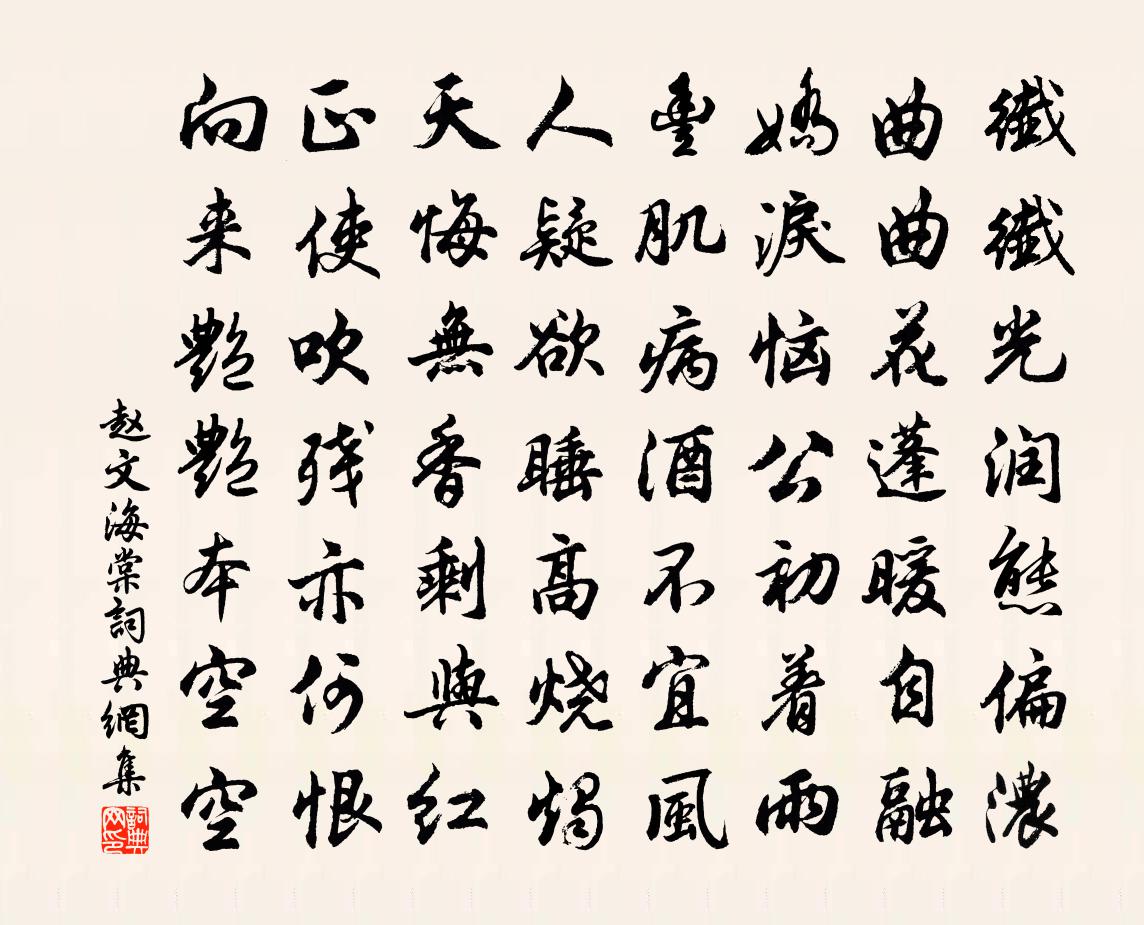 纖纖光润態偏濃
曲曲花蓬暖自融
嬌淚恼公初着雨
豊肌病酒不宜風
人疑欲睡高烧燭
天悔無香剩與红
正使吹残亦何恨
向来艷艷本空空
赵文海棠詞典網集
詞典网印